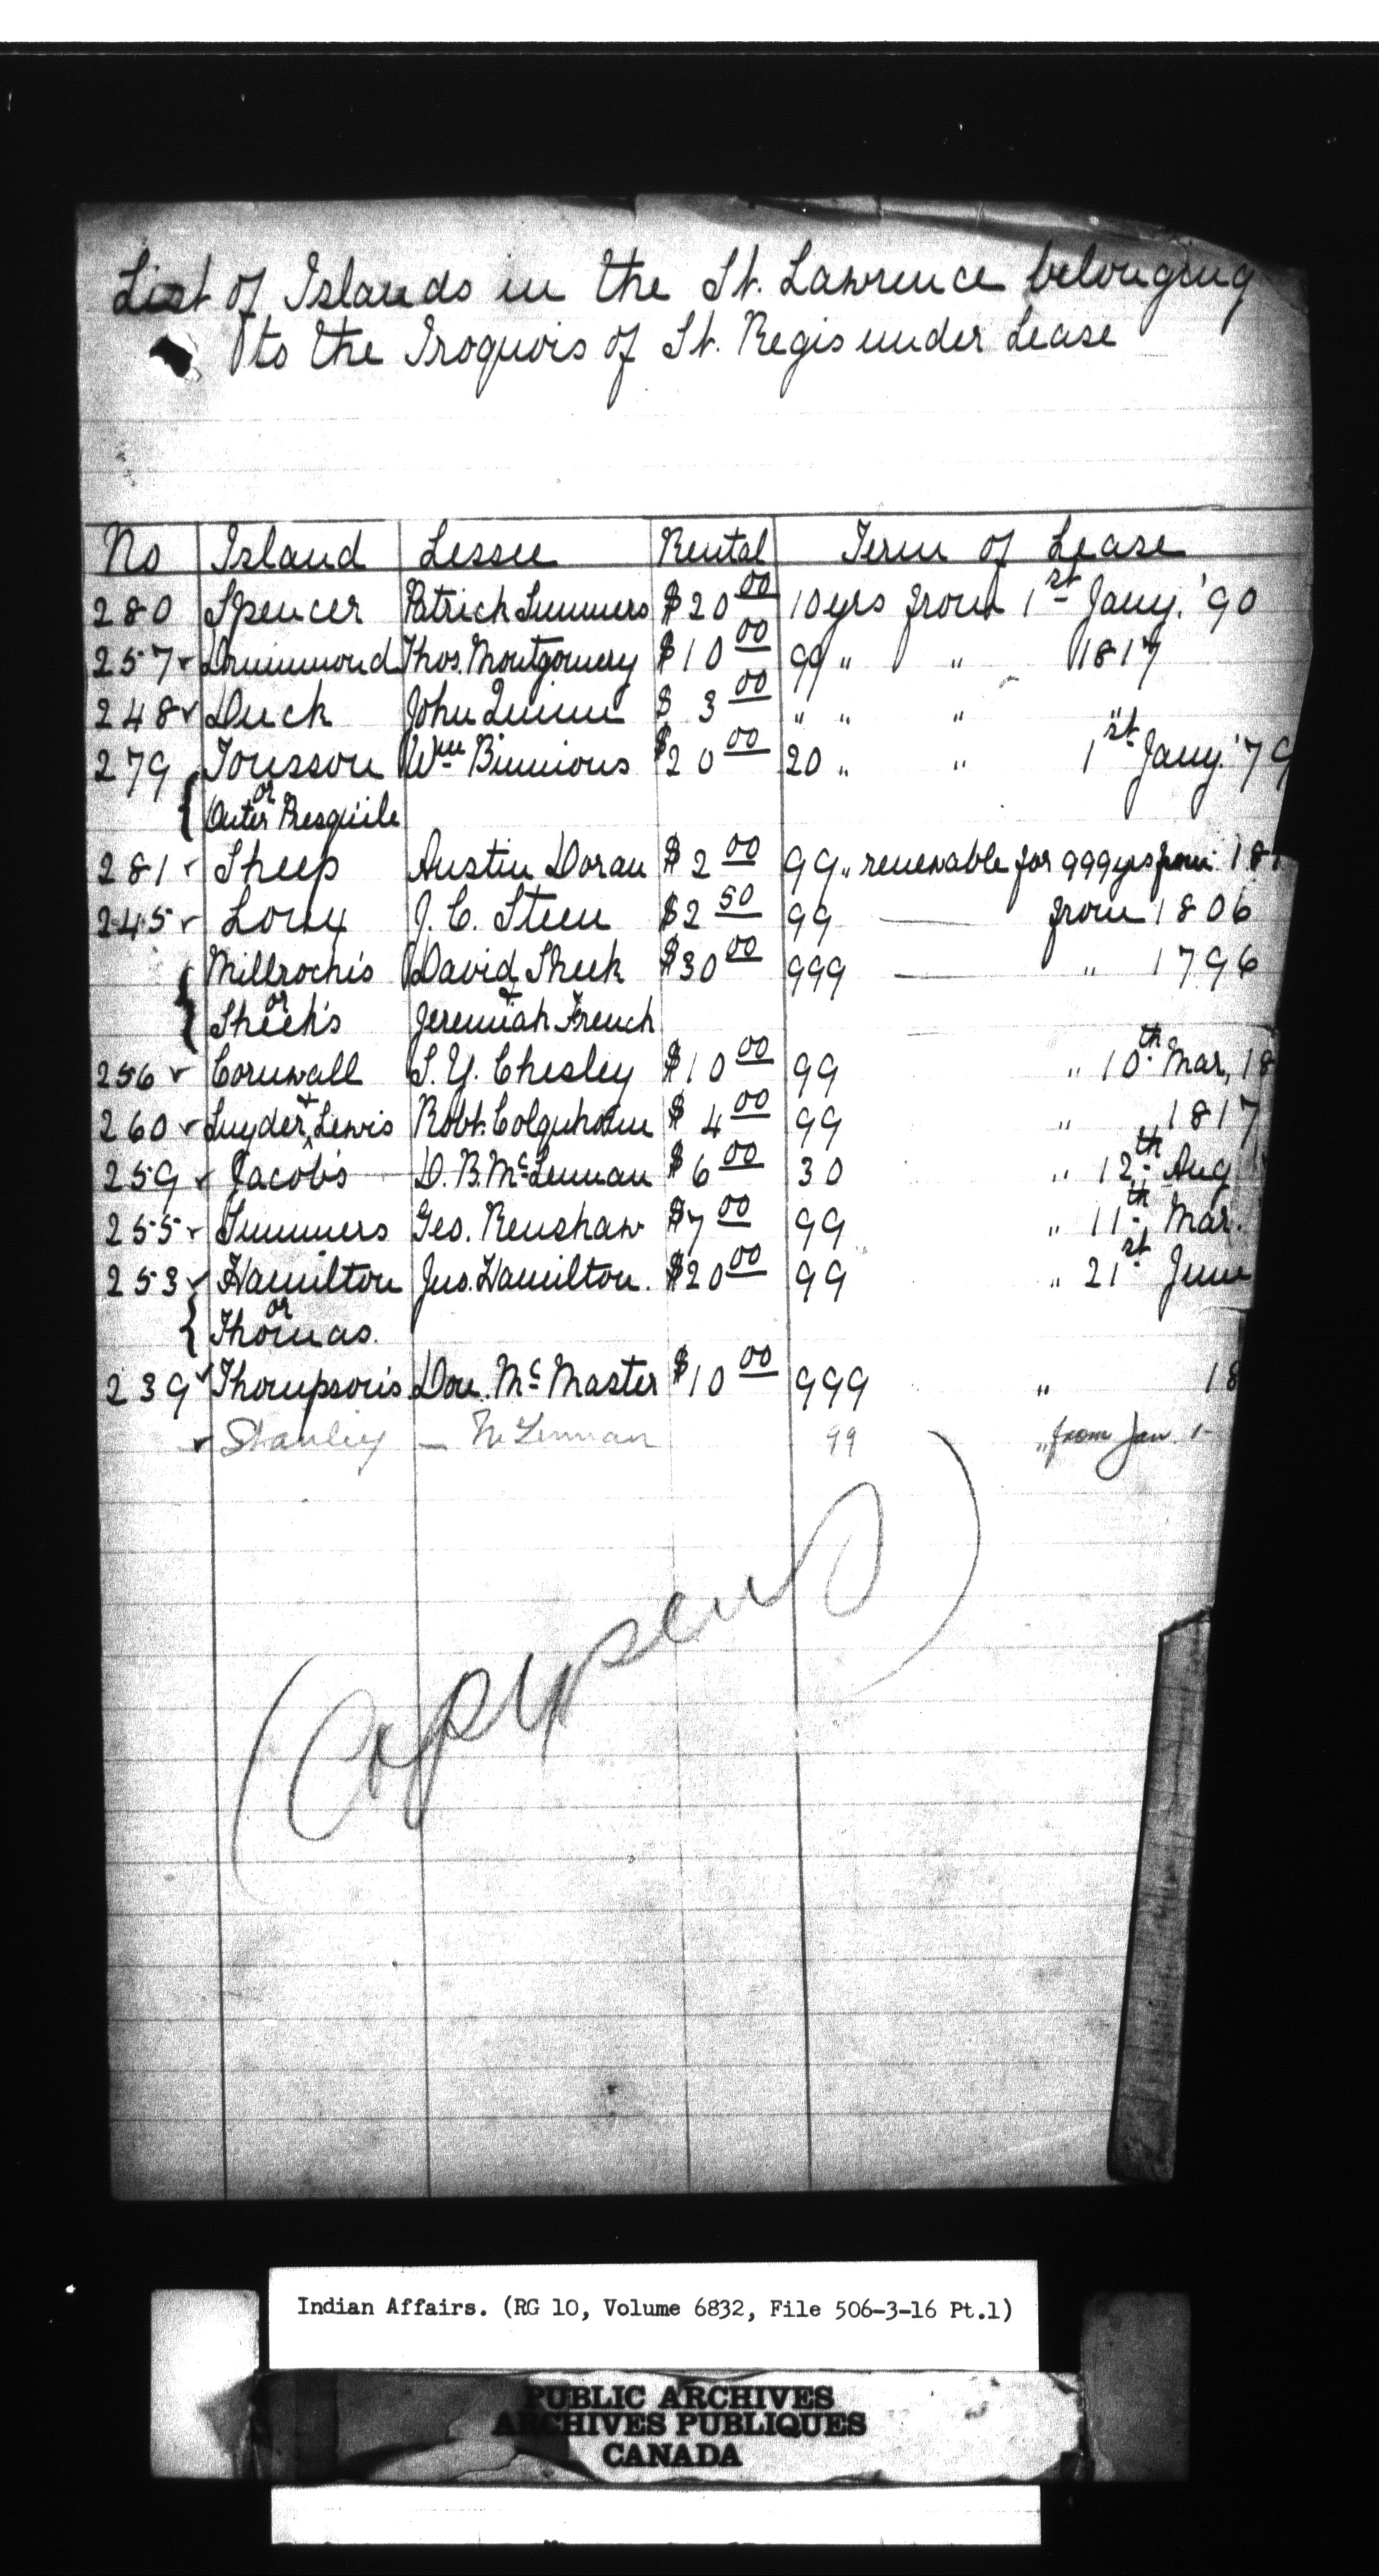 List of Islands in the St. Lawrence belonging
to the Iroquois of St. Regis under Lease
No Island Lessee Rental Term of Lease
280 Spencer Patrick Summers $20 00 10 yrs from 1st Jany. '90
257 ✓ Drummond Thos. Montgomery $10 00 99 " " 1817
248 ✓ Duck John Quinn $ 3 00 " " " "
279 Tousson Wm Binnions $20 00 20 " " 1st Jany. '79
{ or
Outer Presqu'ile
281 ✓ Sheep Austin Doran $2 00 99 " renewable for 999 yrs from 18
245 ✓ Long J. C. Steen $2 50 99 — from 1806
Millrochis David Sheek $30 00 999 — " 1796
{ or &
Sheek's Jeremiah French
256 ✓ Cornwall S. Y. Chesley $10 00 99 " 10th Mar, 18
260 ✓ Snyder & Lewis Robt. Colquhoun $ 4 00 99 " 1817
259 ✓ Jacob's D. B. McLennan $6 00 30 " 12th Aug
255 ✓ Summers Geo. Renshaw $7 00 99 " 11th Mar.
253 ✓ Hamilton Jus. Hamilton. $20 00 99 " 21st June
{ or
Thomas.
239 ✓ Thompson's Don. Mc Master $10 00 999 " 18
✓ Stanley — McLennan 99 " from Jan. 1
(Copy sent)
Indian Affairs. (RG 10, Volume 6832, File 506-3-16 Pt.1)
PUBLIC ARCHIVES
ARCHIVES PUBLIQUES
CANADA